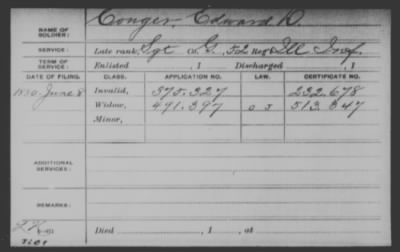 Conger, Edward D.
NAME OF SOLDIER:
SERVICE: Late rank, Sgt Co. G, 52 Reg't Ill Inf.
TERM OF SERVICE: Enlisted , 1 Discharged , 1
DATE OF FILING. CLASS. APPLICATION NO. LAW. CERTIFICATE NO.
June 8 Invalid, 375.327 232.678
Widow, 491.397 513.347
Minor,
ADDITIONAL SERVICES:
REMARKS:
Died , 1 , at